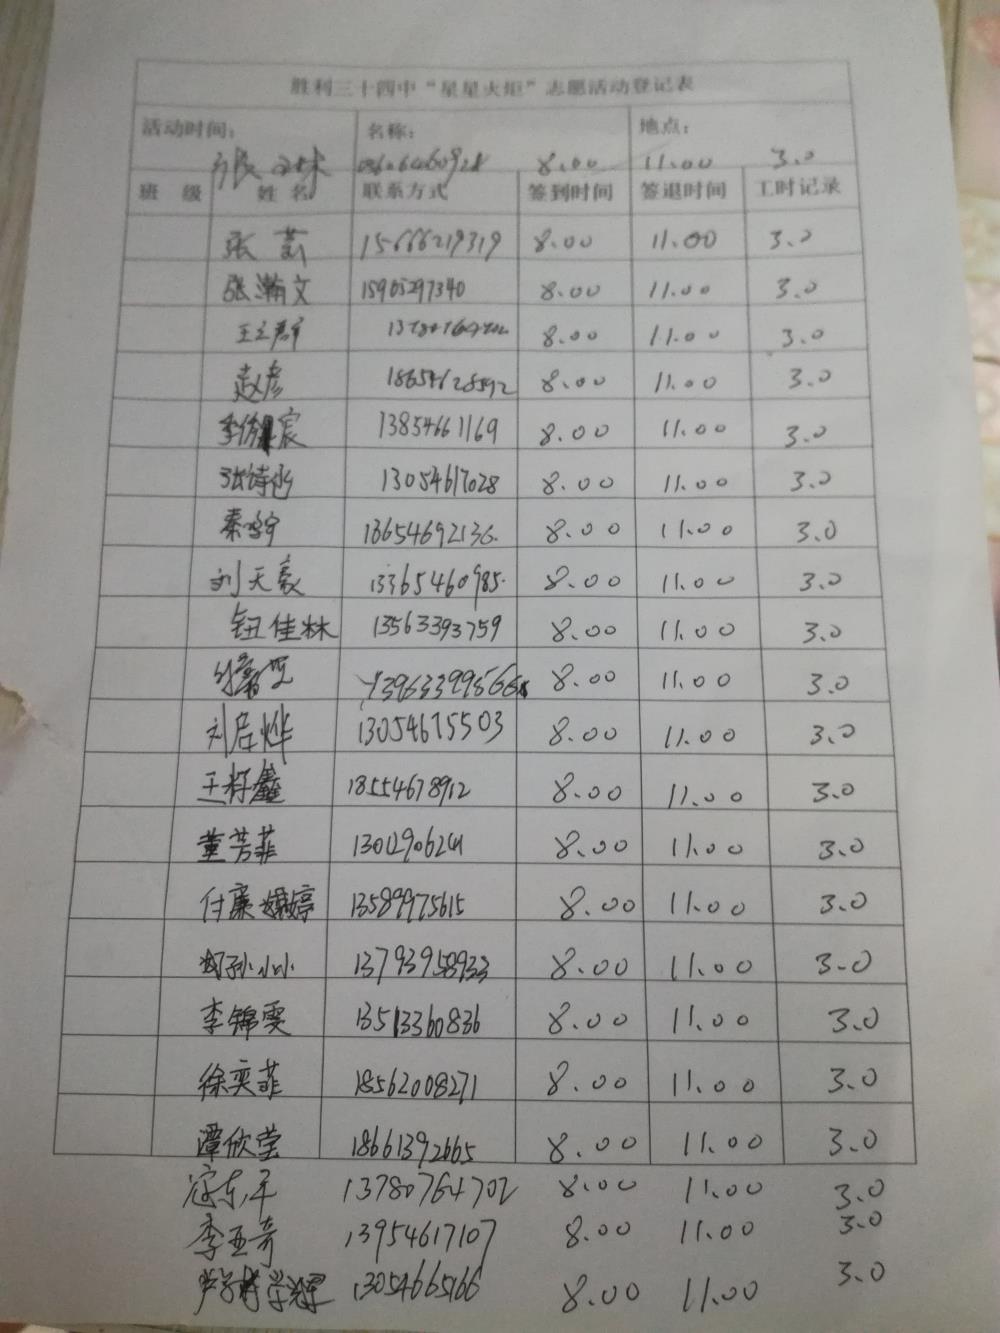 胜利三十四中“星星火炬”志愿活动登记表
活动时间： 名称： 地点：
张 8.00 11.00 3.0
班 级 姓 名 联系方式 签到时间 签退时间 工时记录
张芸 15666219319 8.00 11.00 3.0
张瀚文 15905297340 8.00 11.00 3.0
王立群 8.00 11.00 3.0
赵彦 18654628592 8.00 11.00 3.0
李 宸 13854661169 8.00 11.00 3.0
张诗函 13054617028 8.00 11.00 3.0
秦 宇 13654692136. 8.00 11.00 3.0
刘天豪 13365460985. 8.00 11.00 3.0
钮佳林 13563393759 8.00 11.00 3.0
8.00 11.00 3.0
刘启烨 13054675503 8.00 11.00 3.0
王籽鑫 18554678912 8.00 11.00 3.0
董芳菲 8.00 11.00 3.0
付廉 婷 13589975615 8.00 11.00 3.0
孙小小 13793958933 8.00 11.00 3.0
李锦雯 13513360836 8.00 11.00 3.0
徐奕菲 18562008271 8.00 11.00 3.0
谭欣莹 18661392665 8.00 11.00 3.0
寇东平 13780764702 8.00 11.00 3.0
李亚奇 13954617107 8.00 11.00 3.0
学辉 13054665166 8.00 11.00 3.0